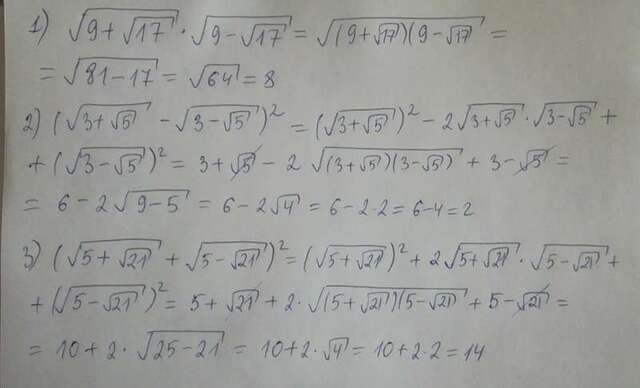 1) √(9+√17) · √(9-√17) = √((9+√17)(9-√17)) =
= √(81-17) = √64 = 8
2) (√(3+√5) - √(3-√5))² = (√(3+√5))² - 2√(3+√5) · √(3-√5) +
+ (√(3-√5))² = 3+√5 - 2 · √((3+√5)(3-√5)) + 3-√5 =
= 6-2√(9-5) = 6-2√4 = 6-2·2=6-4=2
3) (√(5+√21) + √(5-√21))² = (√(5+√21))² + 2√(5+√21) · √(5-√21) +
+ (√(5-√21))² = 5+√21 + 2 · √((5+√21)(5-√21)) + 5-√21 =
= 10+2 · √(25-21) = 10+2·√4 = 10+2·2=14